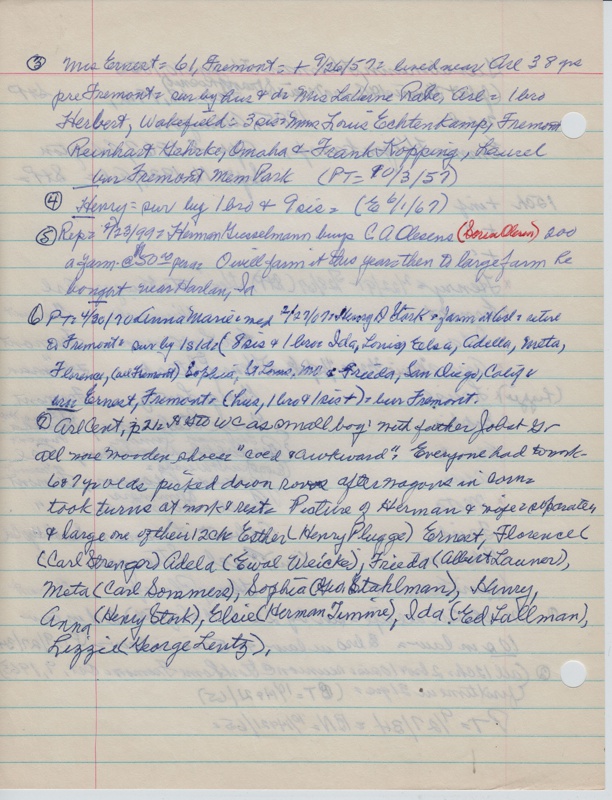 ③ Mrs Ernest = 61, Fremont = + 9/26/57 = lived near Arl 38 yrs
pre Fremont = sur by hus & da Mrs LaVerne Rabe, Arl = 1 bro
Herbert, Wakefield = 3 sis = Mmes Louis Echtenkamp, Fremont
Reinhart Gehrke, Omaha & Frank Kopping, Laurel
bur Fremont Mem Park (PT = 10/3/57)
④ Henry = sur by 1 bro & 9 sis = (E 6/1/67)
⑤ Rep = 2/23/99 = Herman Gusselmann buys C A Olesens (Soren Olesen) 200
a farm @ $50.00 per a = O will farm it this year & then to large farm he
bought near Harlan, Ia
⑥ PT = 4/30/70 Anna Marie = med 2/27/07 = Henry D Stork = farm at bd = retire
to Fremont = sur by 1s 1d ( 8 sis & 1 bro = Ida, Louis, Elsa, Adella, Meta,
Florence, (all Fremont) Sophia, St Louis, MO & Frieda, San Diego, Calif &
bro Ernest, Fremont = (hus, 1 bro & 1 sis +) = bur Fremont.
⑦ Arl Cent, p 212 = H to WC as small boy with father Jobst Gr
all wore wooden shoes "cold & awkward". Everyone had to work -
6 & 7 yr olds picked down rows after wagons in corn =
took turns at work & rest = Picture of Herman & wife = separately
& large one of their 12 ch Esther (Henry Plugge) Ernest, Florence (
(Carl Strenger) Adela (Ewal Weicke), Frieda (Albert Launer),
Meta (Carl Sommers), Sophia (Geo Stahlman), Henry,
Anna (Henry Stork), Elsie (Herman Timme), Ida (Ed Lallman),
Lizzie (George Lentz).